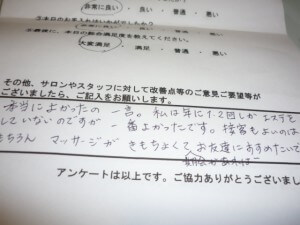 非常に良い・良い・普通・悪い
本日の総合満足度を教えてください。
大変満足・満足・普通・悪い
その他、サロンやスタッフに対して改善点等のご意見ご要望等が
ございましたら、ご記入をお願いします。
本当によかったの一言。私は年に1.2回しかエステを
していないのですが一番よかったです。接客もよいのは
もちろんマッサージがきもちよくてお友達にすすめたいで
アンケートは以上です。ご協力ありがとうございまし